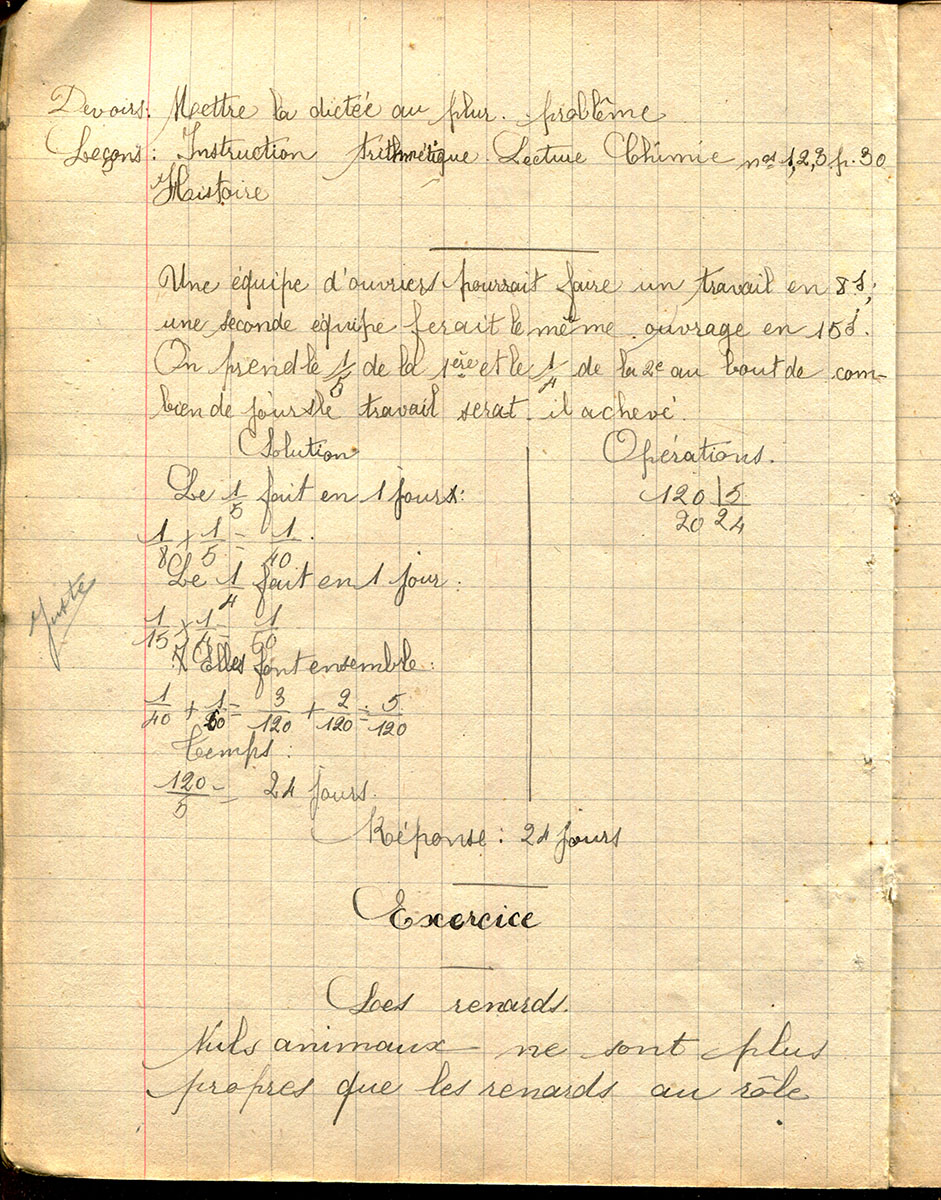 Devoirs: Mettre la dictée au plur. problême
Leçons: Instruction Arithmétique. Lecture Chimie nos 1,2,3 p. 30
Histoire
Une équipe d'ouvriers pourrait faire un travail en 8 j;
une seconde équipe ferait le même ouvrage en 15 j.
On prend le 1/5 de la 1ère et le 1/4 de la 2e au bout de com-
bien de jours le travail serat-il achevé.
Solution
Le 1/5 fait en 1 jours:
1/8 × 1/5 = 1/40.
Le 1/4 fait en 1 jour.
1/15 × 1/4 = 1/60
Elles font ensemble:
1/40 + 1/60 = 3/120 + 2/120 = 5/120
Temps:
120/5 = 24 jours.
Opérations.
120 | 5
20 24
Juste
Réponse: 24 jours
Exercice
Les renards.
Nuls animaux ne sont plus
propres que les renards au rôle